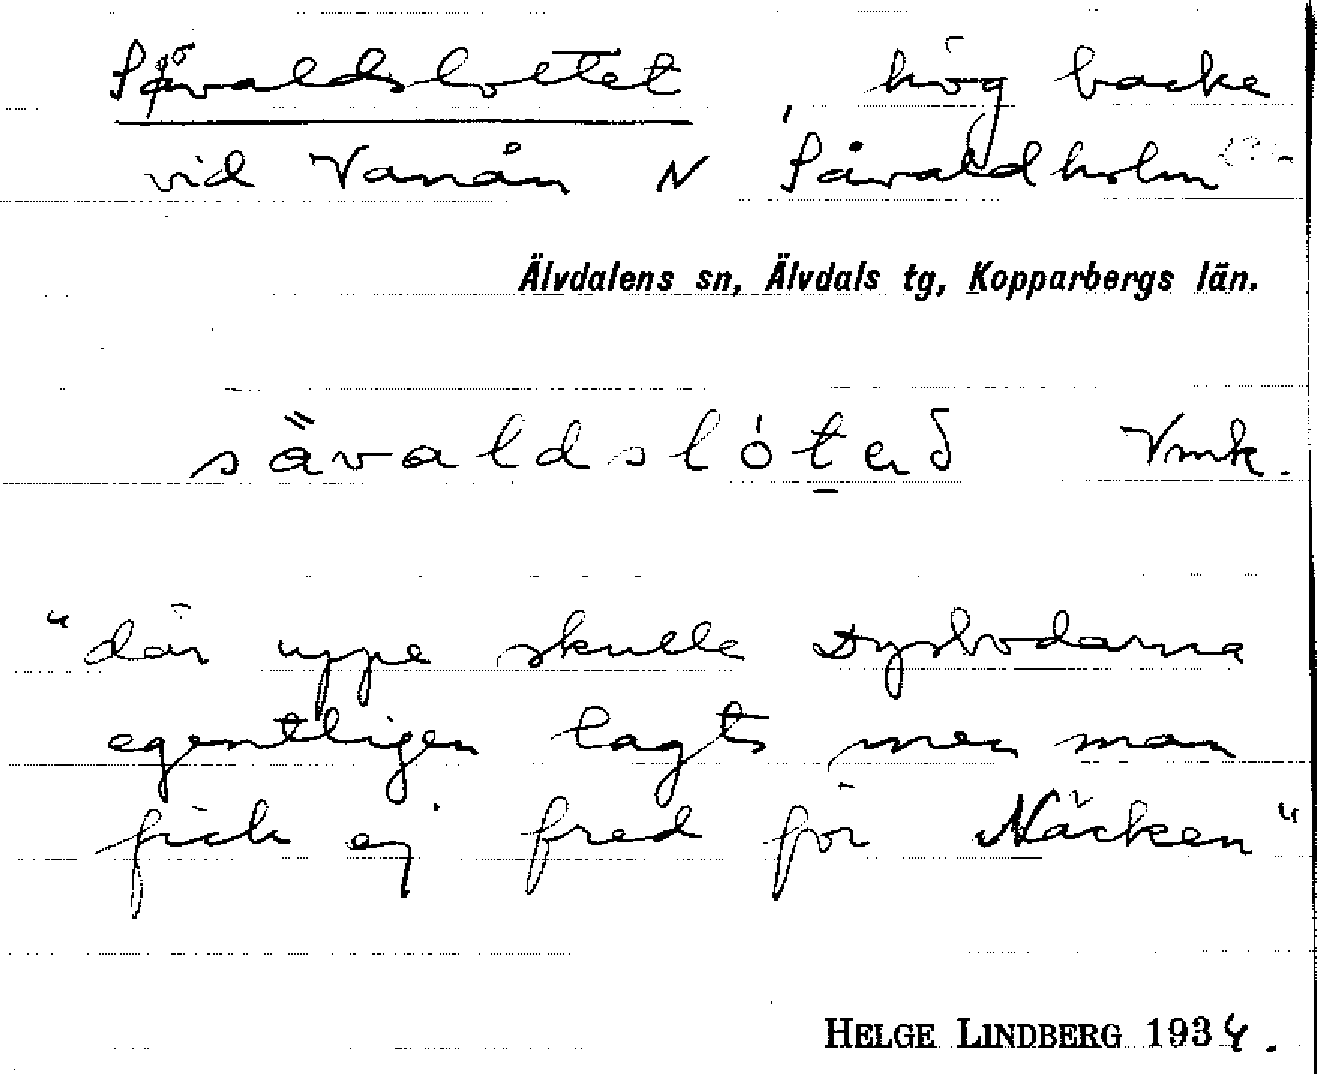 Såvaldslottet, hög backe
vid Vanån N Såvaldholm
Älvdalens sn, Älvdals tg, Kopparbergs län.
sävaldslóteð Vmk.
"där uppe skulle Dysbodarna
egentligen lagts men man
fick ej fred för Näcken"
HELGE LINDBERG 1934.